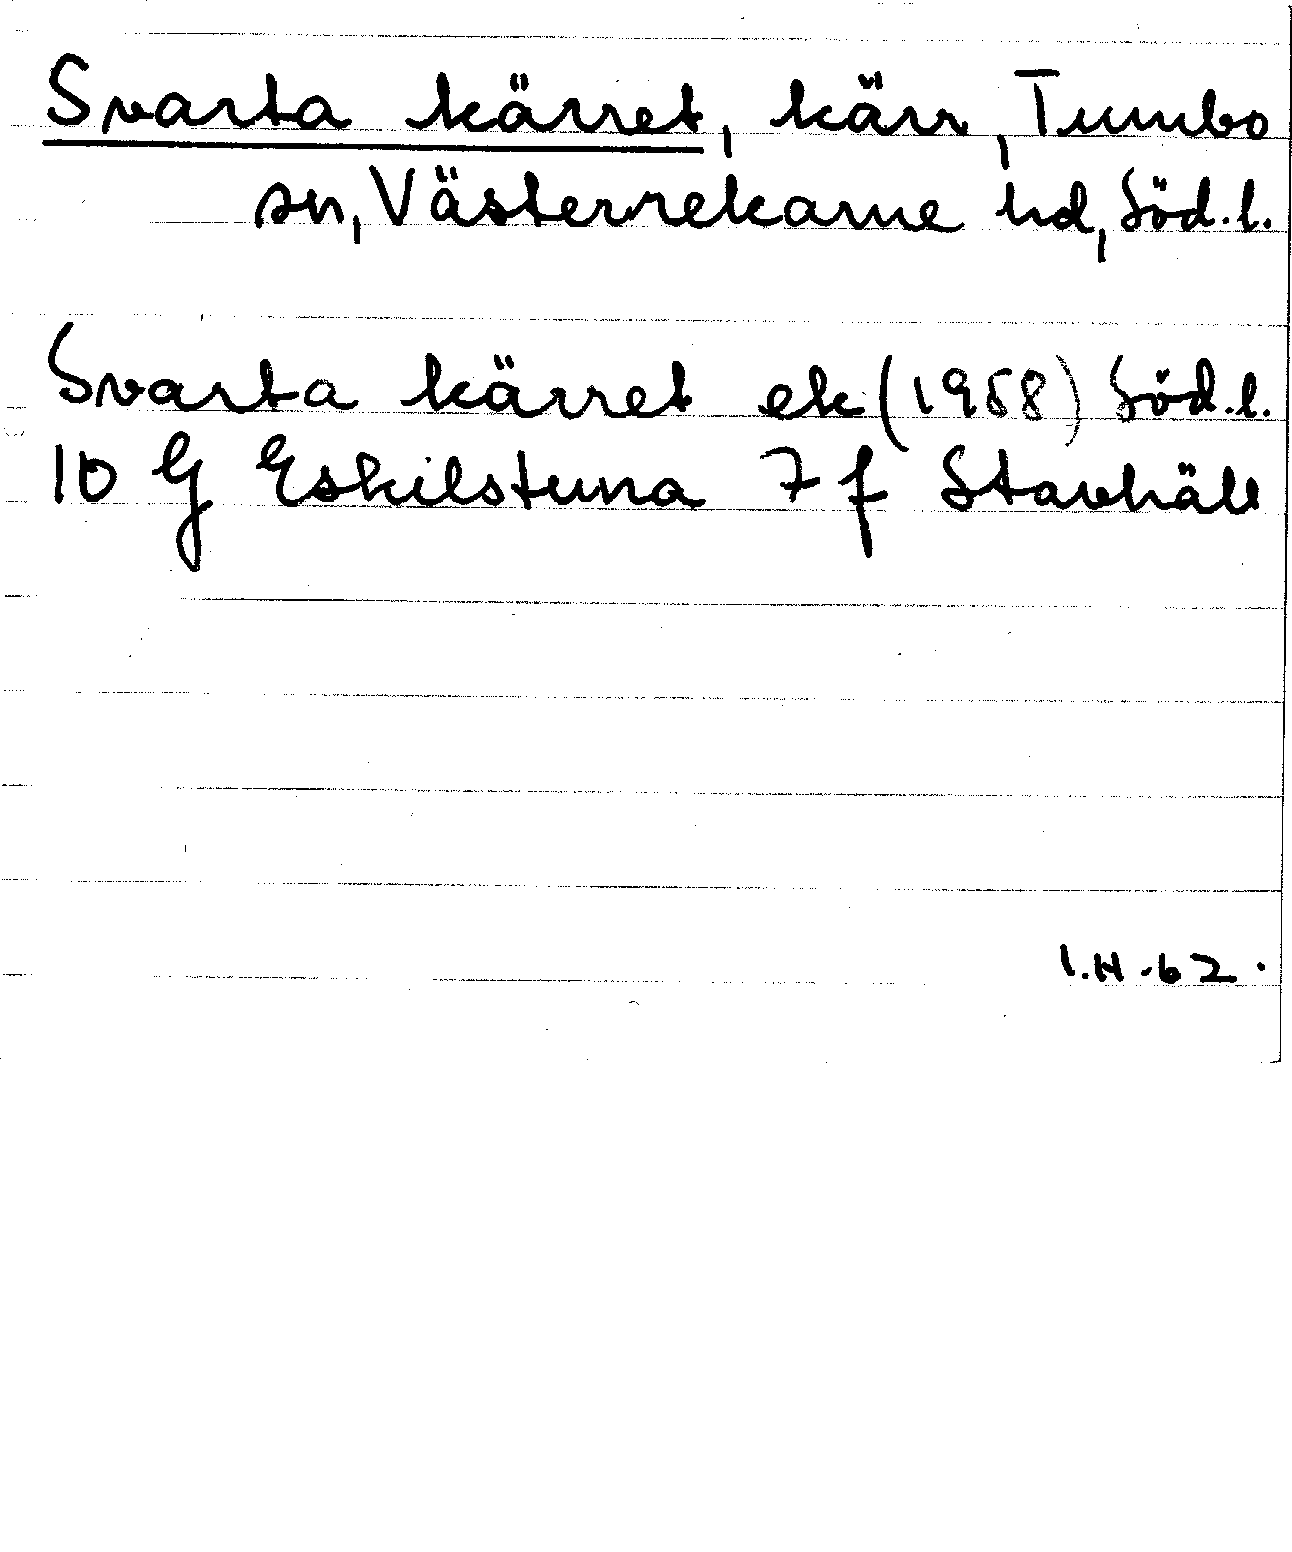 Svarta kärret, kärr, Tumbo
sn, Västerrekarne hd, Söd.l.
Svarta kärret ek (1958) Söd.l.
10 G Eskilstuna 7 f Stavhäll
I.H.62.